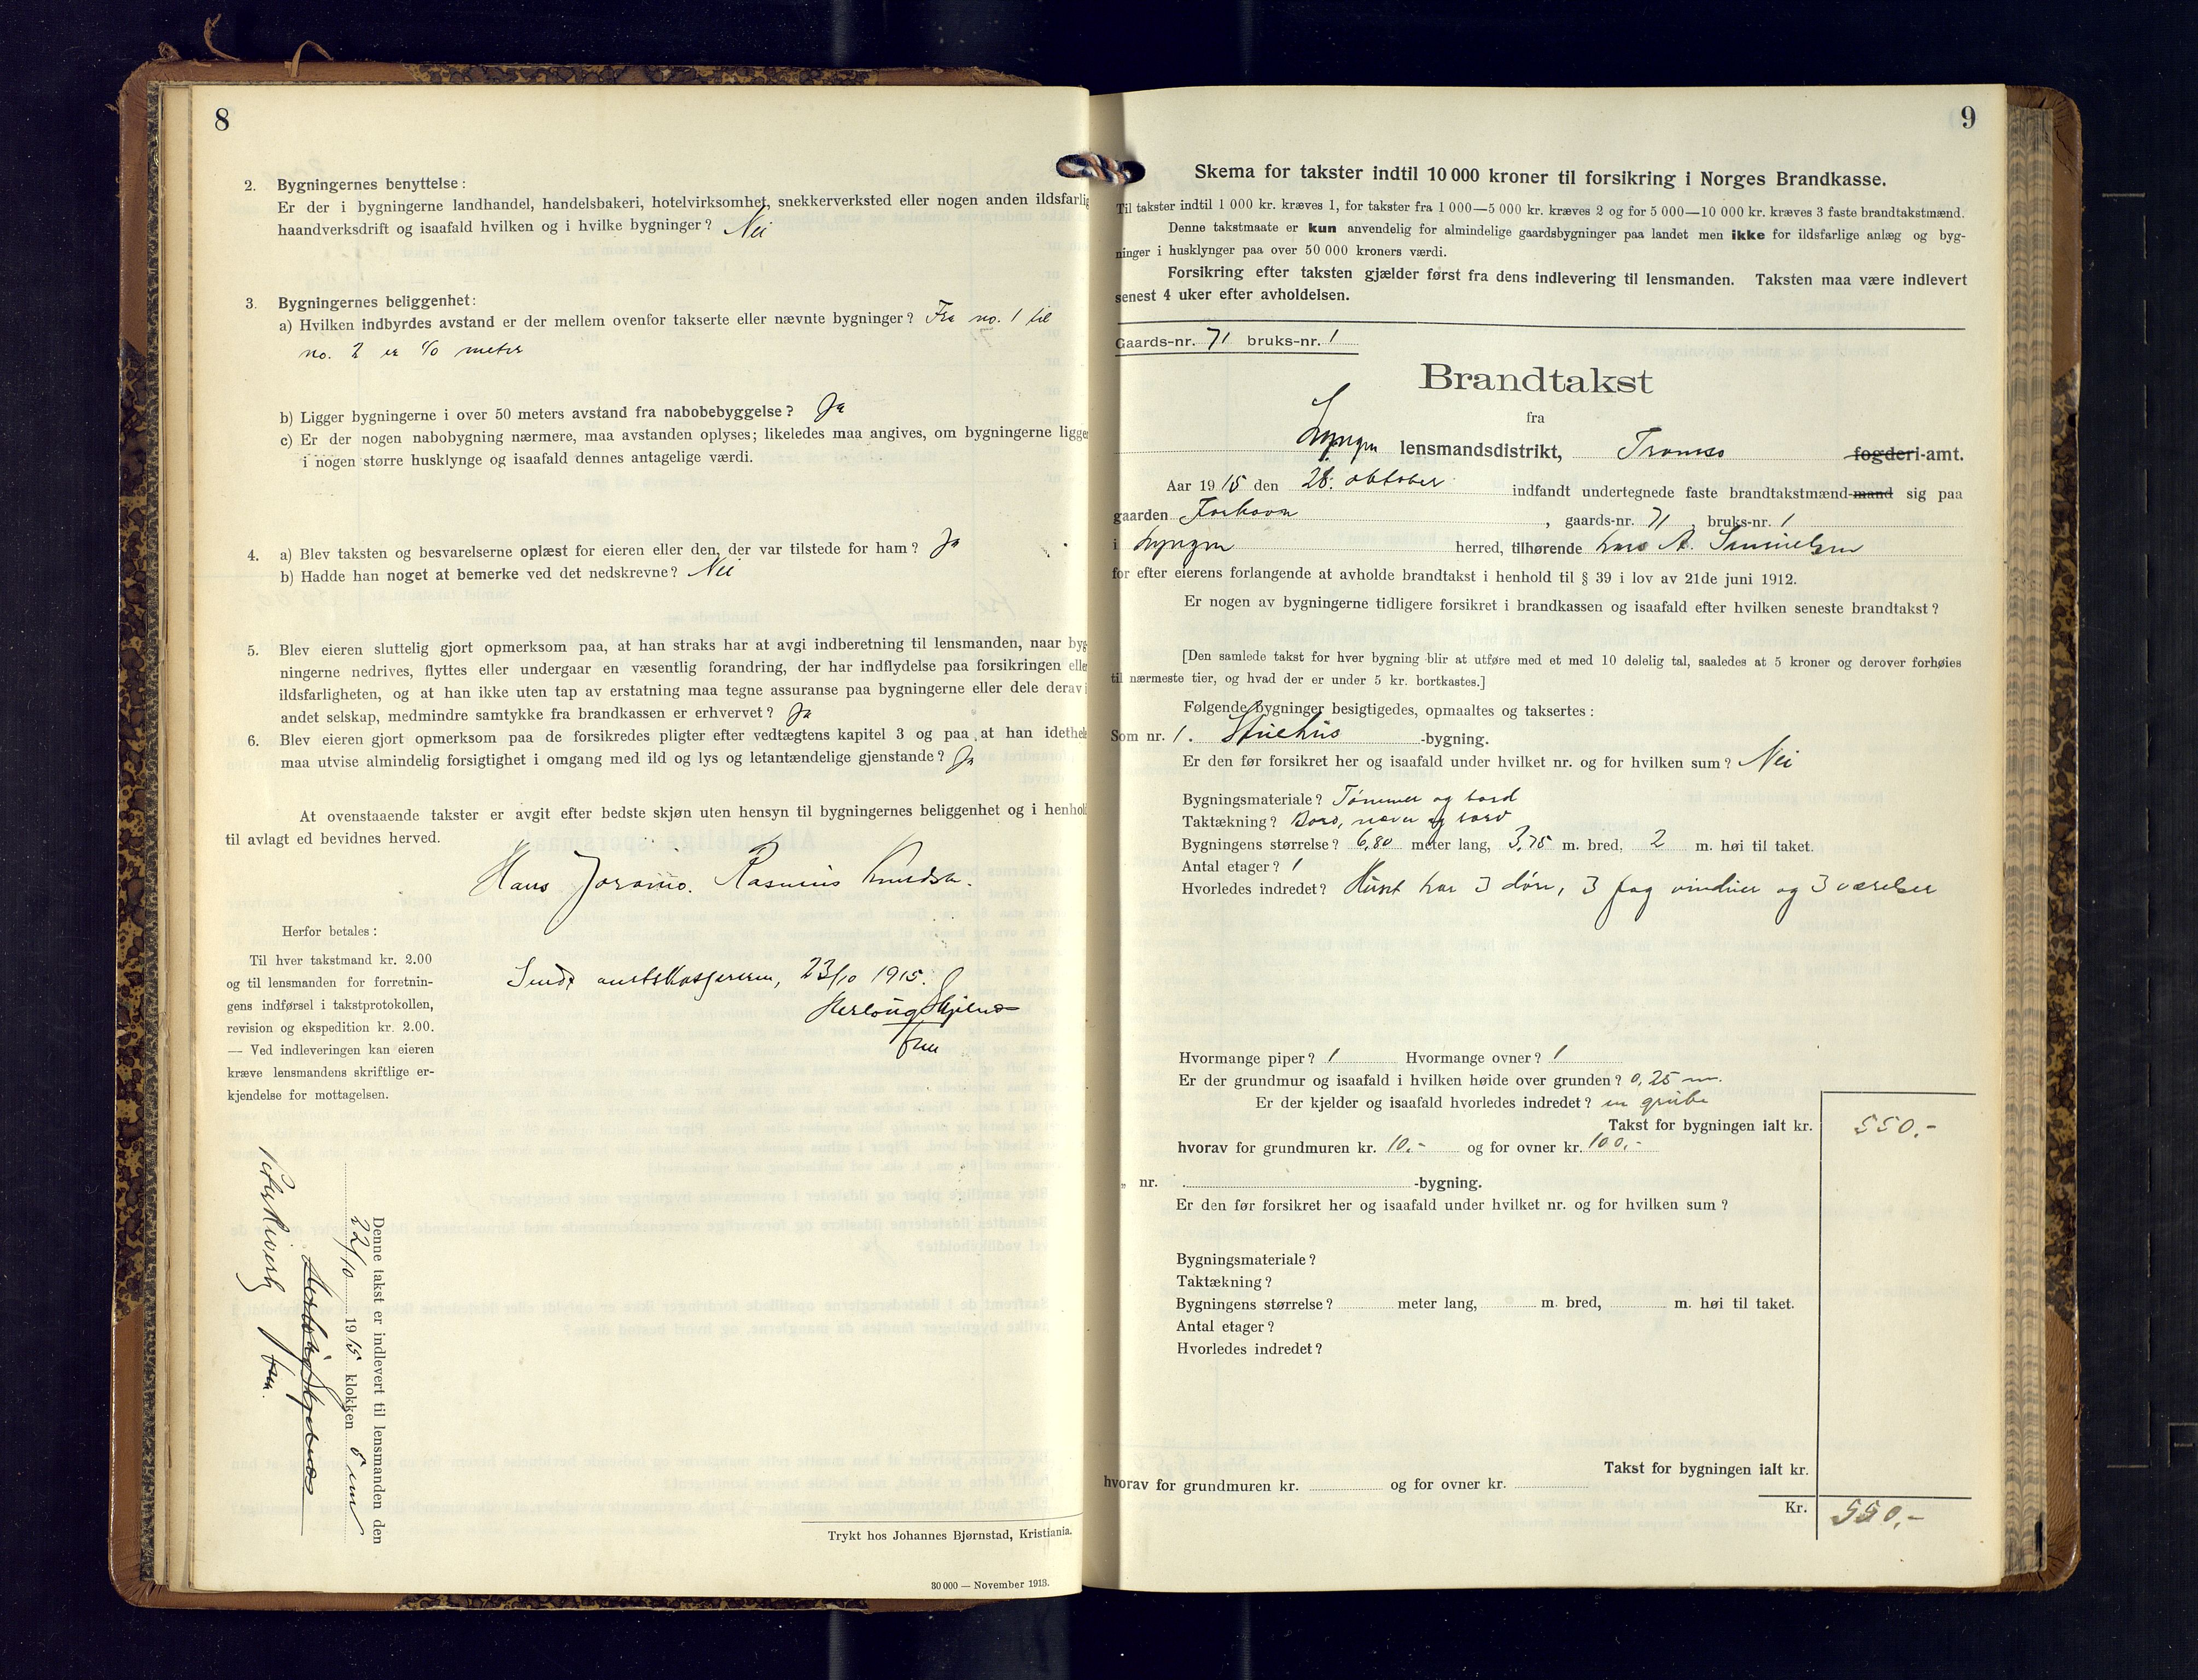 8
2. Bygningernes benyttelse:
Er der i bygningerne landhandel, handelsbakeri, hotelvirksomhet, snekkerverksted eller nogen anden ildsfarlig
haandverksdrift og isaafald hvilken og i hvilke bygninger? Nei
3. Bygningernes beliggenhet:
a) Hvilken indbyrdes avstand er der mellem ovenfor takserte eller nævnte bygninger? Fra no. 1 til
no. 2 er 40 meter
b) Ligger bygningerne i over 50 meters avstand fra nabobebyggelse? Ja
c) Er der nogen nabobygning nærmere, maa avstanden oplyses; likeledes maa angives, om bygningerne ligger
i nogen større husklynge og isaafald dennes antagelige værdi.
4. a) Blev taksten og besvarelserne oplæst for eieren eller den, der var tilstede for ham? Ja
b) Hadde han noget at bemerke ved det nedskrevne? Nei
5. Blev eieren sluttelig gjort opmerksom paa, at han straks har at avgi indberetning til lensmanden, naar byg-
ningerne nedrives, flyttes eller undergaar en væsentlig forandring, der har indflydelse paa forsikringen eller
ildsfarligheten, og at han ikke uten tap av erstatning maa tegne assuranse paa bygningerne eller dele derav i
andet selskap, medmindre samtykke fra brandkassen er erhvervet? Ja
6. Blev eieren gjort opmerksom paa de forsikredes pligter efter vedtægtens kapitel 3 og paa at han idethele
maa utvise almindelig forsigtighet i omgang med ild og lys og letantændelige gjenstande? Ja
At ovenstaaende takster er avgit efter bedste skjøn uten hensyn til bygningernes beliggenhet og i henhold
til avlagt ed bevidnes herved.
Hans Joramo. Rasmus Knudsen.
Herfor betales:
Til hver takstmand kr. 2.00
og til lensmanden for forretnin-
gens indførsel i takstprotokollen,
revision og ekspedition kr. 2.00.
— Ved indleveringen kan eieren
kræve lensmandens skriftlige er-
kjendelse for mottagelsen.
Sendt amtskasjereren, 23/10 1915.
Herlaug Skjelnes
fm
Denne takst er indlevert til lensmanden den
22/10 1915 klokken 5 em
Herlaug Skjelnes
fm.
Trykt hos Johannes Bjørnstad, Kristiania.
30 000 — November 1913.
9
Skema for takster indtil 10 000 kroner til forsikring i Norges Brandkasse.
Til takster indtil 1 000 kr. kræves 1, for takster fra 1 000—5 000 kr. kræves 2 og for 5 000—10 000 kr. kræves 3 faste brandtakstmænd.
Denne takstmaate er kun anvendelig for almindelige gaardsbygninger paa landet men ikke for ildsfarlige anlæg og byg-
ninger i husklynger paa over 50 000 kroners værdi.
Forsikring efter taksten gjælder først fra dens indlevering til lensmanden. Taksten maa være indlevert
senest 4 uker efter avholdelsen.
Gaards-nr. 71 bruks-nr. 1
Brandtakst
fra
Lyngen lensmandsdistrikt, Tromsø fogderi-amt.
Aar 1915 den 28. oktober indfandt undertegnede faste brandtakstmænd-mand sig paa
gaarden , gaards-nr. 71 bruks-nr. 1
i Lyngen herred, tilhørende Lars A. Samuelsen
for efter eierens forlangende at avholde brandtakst i henhold til § 39 i lov av 21de juni 1912.
Er nogen av bygningerne tidligere forsikret i brandkassen og isaafald efter hvilken seneste brandtakst?
[Den samlede takst for hver bygning blir at utføre med et med 10 delelig tal, saaledes at 5 kroner og derover forhøies
til nærmeste tier, og hvad der er under 5 kr. bortkastes.]
Følgende bygninger besigtigedes, opmaaltes og taksertes:
Som nr. 1. Stuehus -bygning.
Er den før forsikret her og isaafald under hvilket nr. og for hvilken sum? Nei
Bygningsmateriale? Tømmer og bord
Taktækning? Bord, næver og bord
Bygningens størrelse? 6,80 meter lang, 3,75 m. bred, 2 m. høi til taket.
Antal etager? 1
Hvorledes indredet? Huset har 3 døre, 3 fag vinduer og 3 værelser
Hvormange piper? 1 Hvormange ovner? 1
Er der grundmur og isaafald i hvilken høide over grunden? 0,25 m.
Er der kjelder og isaafald hvorledes indredet? en grube
Takst for bygningen ialt kr. 550.-
hvorav for grundmuren kr. 10.- og for ovner kr. 100.-
„ nr. -bygning.
Er den før forsikret her og isaafald under hvilket nr. og for hvilken sum?
Bygningsmateriale?
Taktækning?
Bygningens størrelse? meter lang, m. bred, m. høi til taket.
Antal etager?
Hvorledes indredet?
Takst for bygningen ialt kr.
hvorav for grundmuren kr. og for ovner kr.
Kr. 550.-